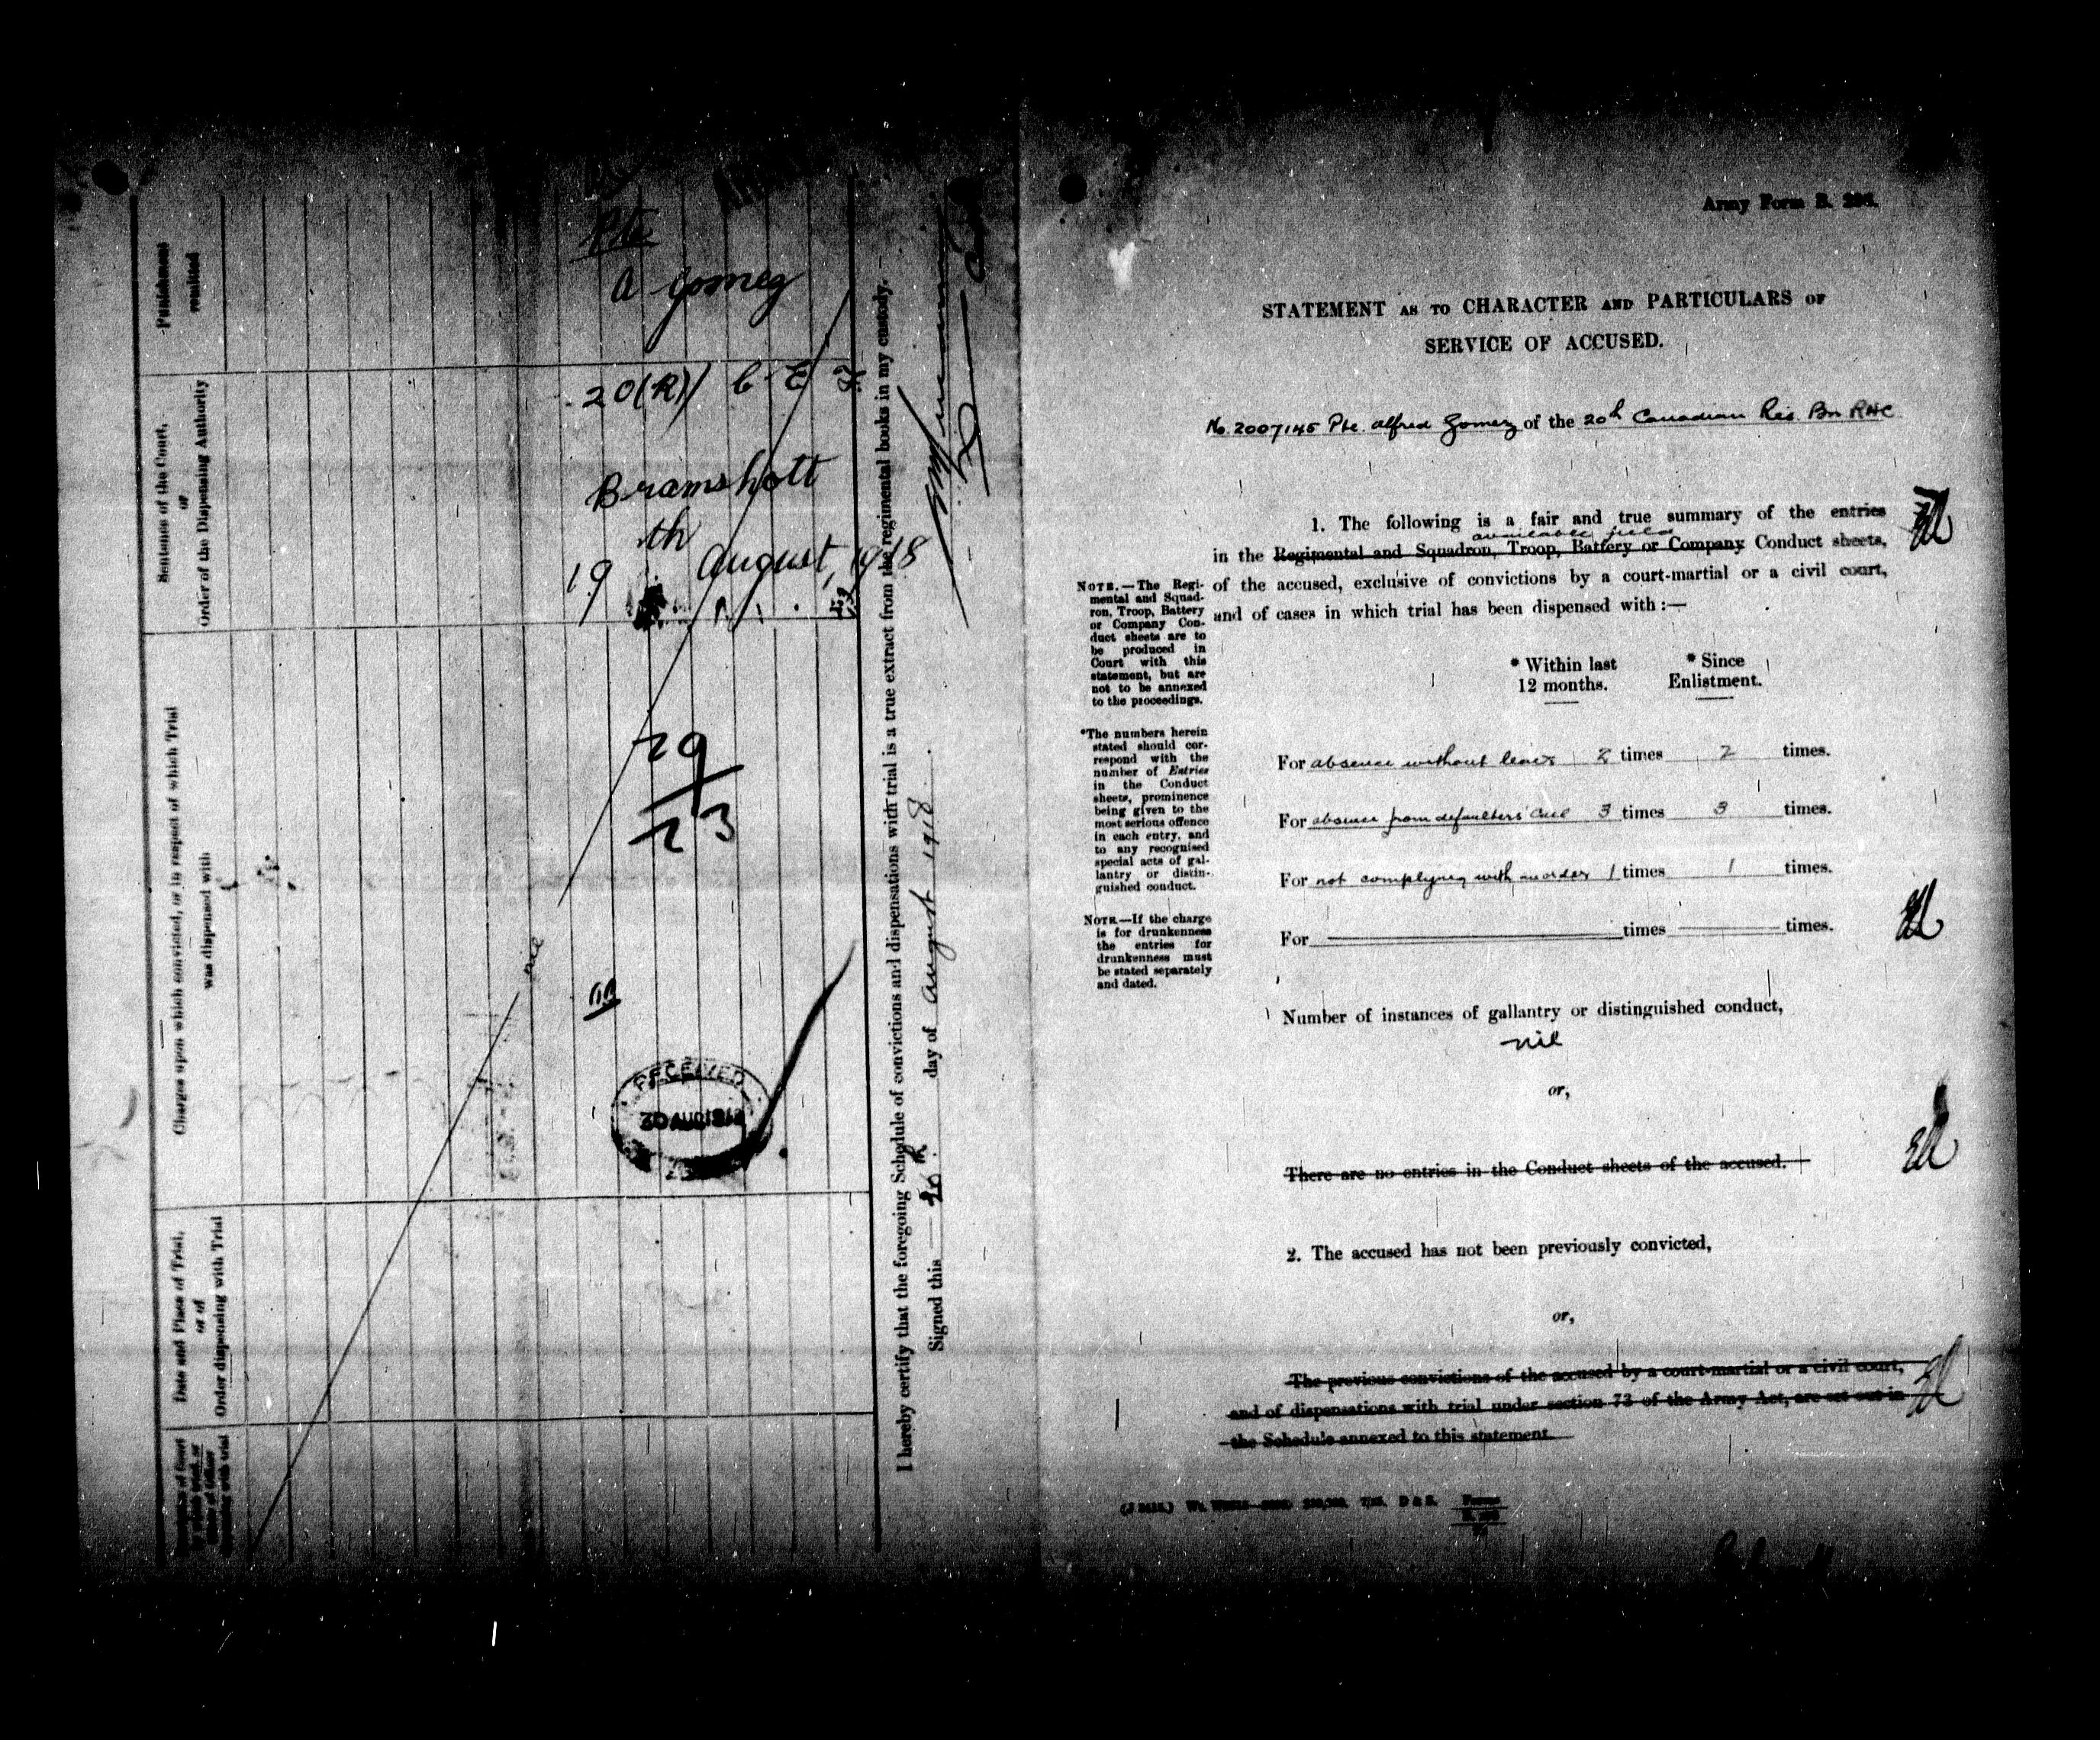 Punishment
remitted
Sentence of the Court,
or
Order of the Dispensing Authority
Charges upon which convicted, or in respect of which Trial
was dispensed with
Date and Place of Trial,
or of
Order dispensing with Trial
Pte
A Gomez
20(R)
Bramshott
19th August, 1918
29
23
nil
RECEIVED
I hereby certify that the foregoing Schedule of convictions and dispensations with trial is a true extract from the regimental books in my custody.
Signed this day of August 1918
Army Form B. 296.
STATEMENT AS TO CHARACTER AND PARTICULARS OF
SERVICE OF ACCUSED.
No. 2007145 Pte. Alfred Gomez of the 20th Canadian Res. Bn RHC
1. The following is a fair and true summary of the entries
available field
in the Regimental and Squadron, Troop, Battery or Company Conduct sheets,
of the accused, exclusive of convictions by a court-martial or a civil court,
and of cases in which trial has been dispensed with :—
NOTE.—The Regi-
mental and Squad-
ron, Troop, Battery
or Company Con-
duct sheets are to
be produced in
Court with this
statement, but are
not to be annexed
to the proceedings.
*The numbers herein
stated should cor-
respond with the
number of Entries
in the Conduct
sheets, prominence
being given to the
most serious offence
in each entry, and
to any recognised
special acts of gal-
lantry or distin-
guished conduct.
NOTE.—If the charge
is for drunkenness
the entries for
drunkenness must
be stated separately
and dated.
* Within last * Since
12 months. Enlistment.
For absence without leave 2 times 2 times.
For absence from defaulters' call 3 times 3 times.
For not complying with an order 1 times 1 times.
For times times.
Number of instances of gallantry or distinguished conduct,
nil
or,
There are no entries in the Conduct sheets of the accused.
2. The accused has not been previously convicted,
or,
The previous convictions of the accused by a court-martial or a civil court,
and of dispensations with trial under section 73 of the Army Act, are set out in
the Schedule annexed to this statement.